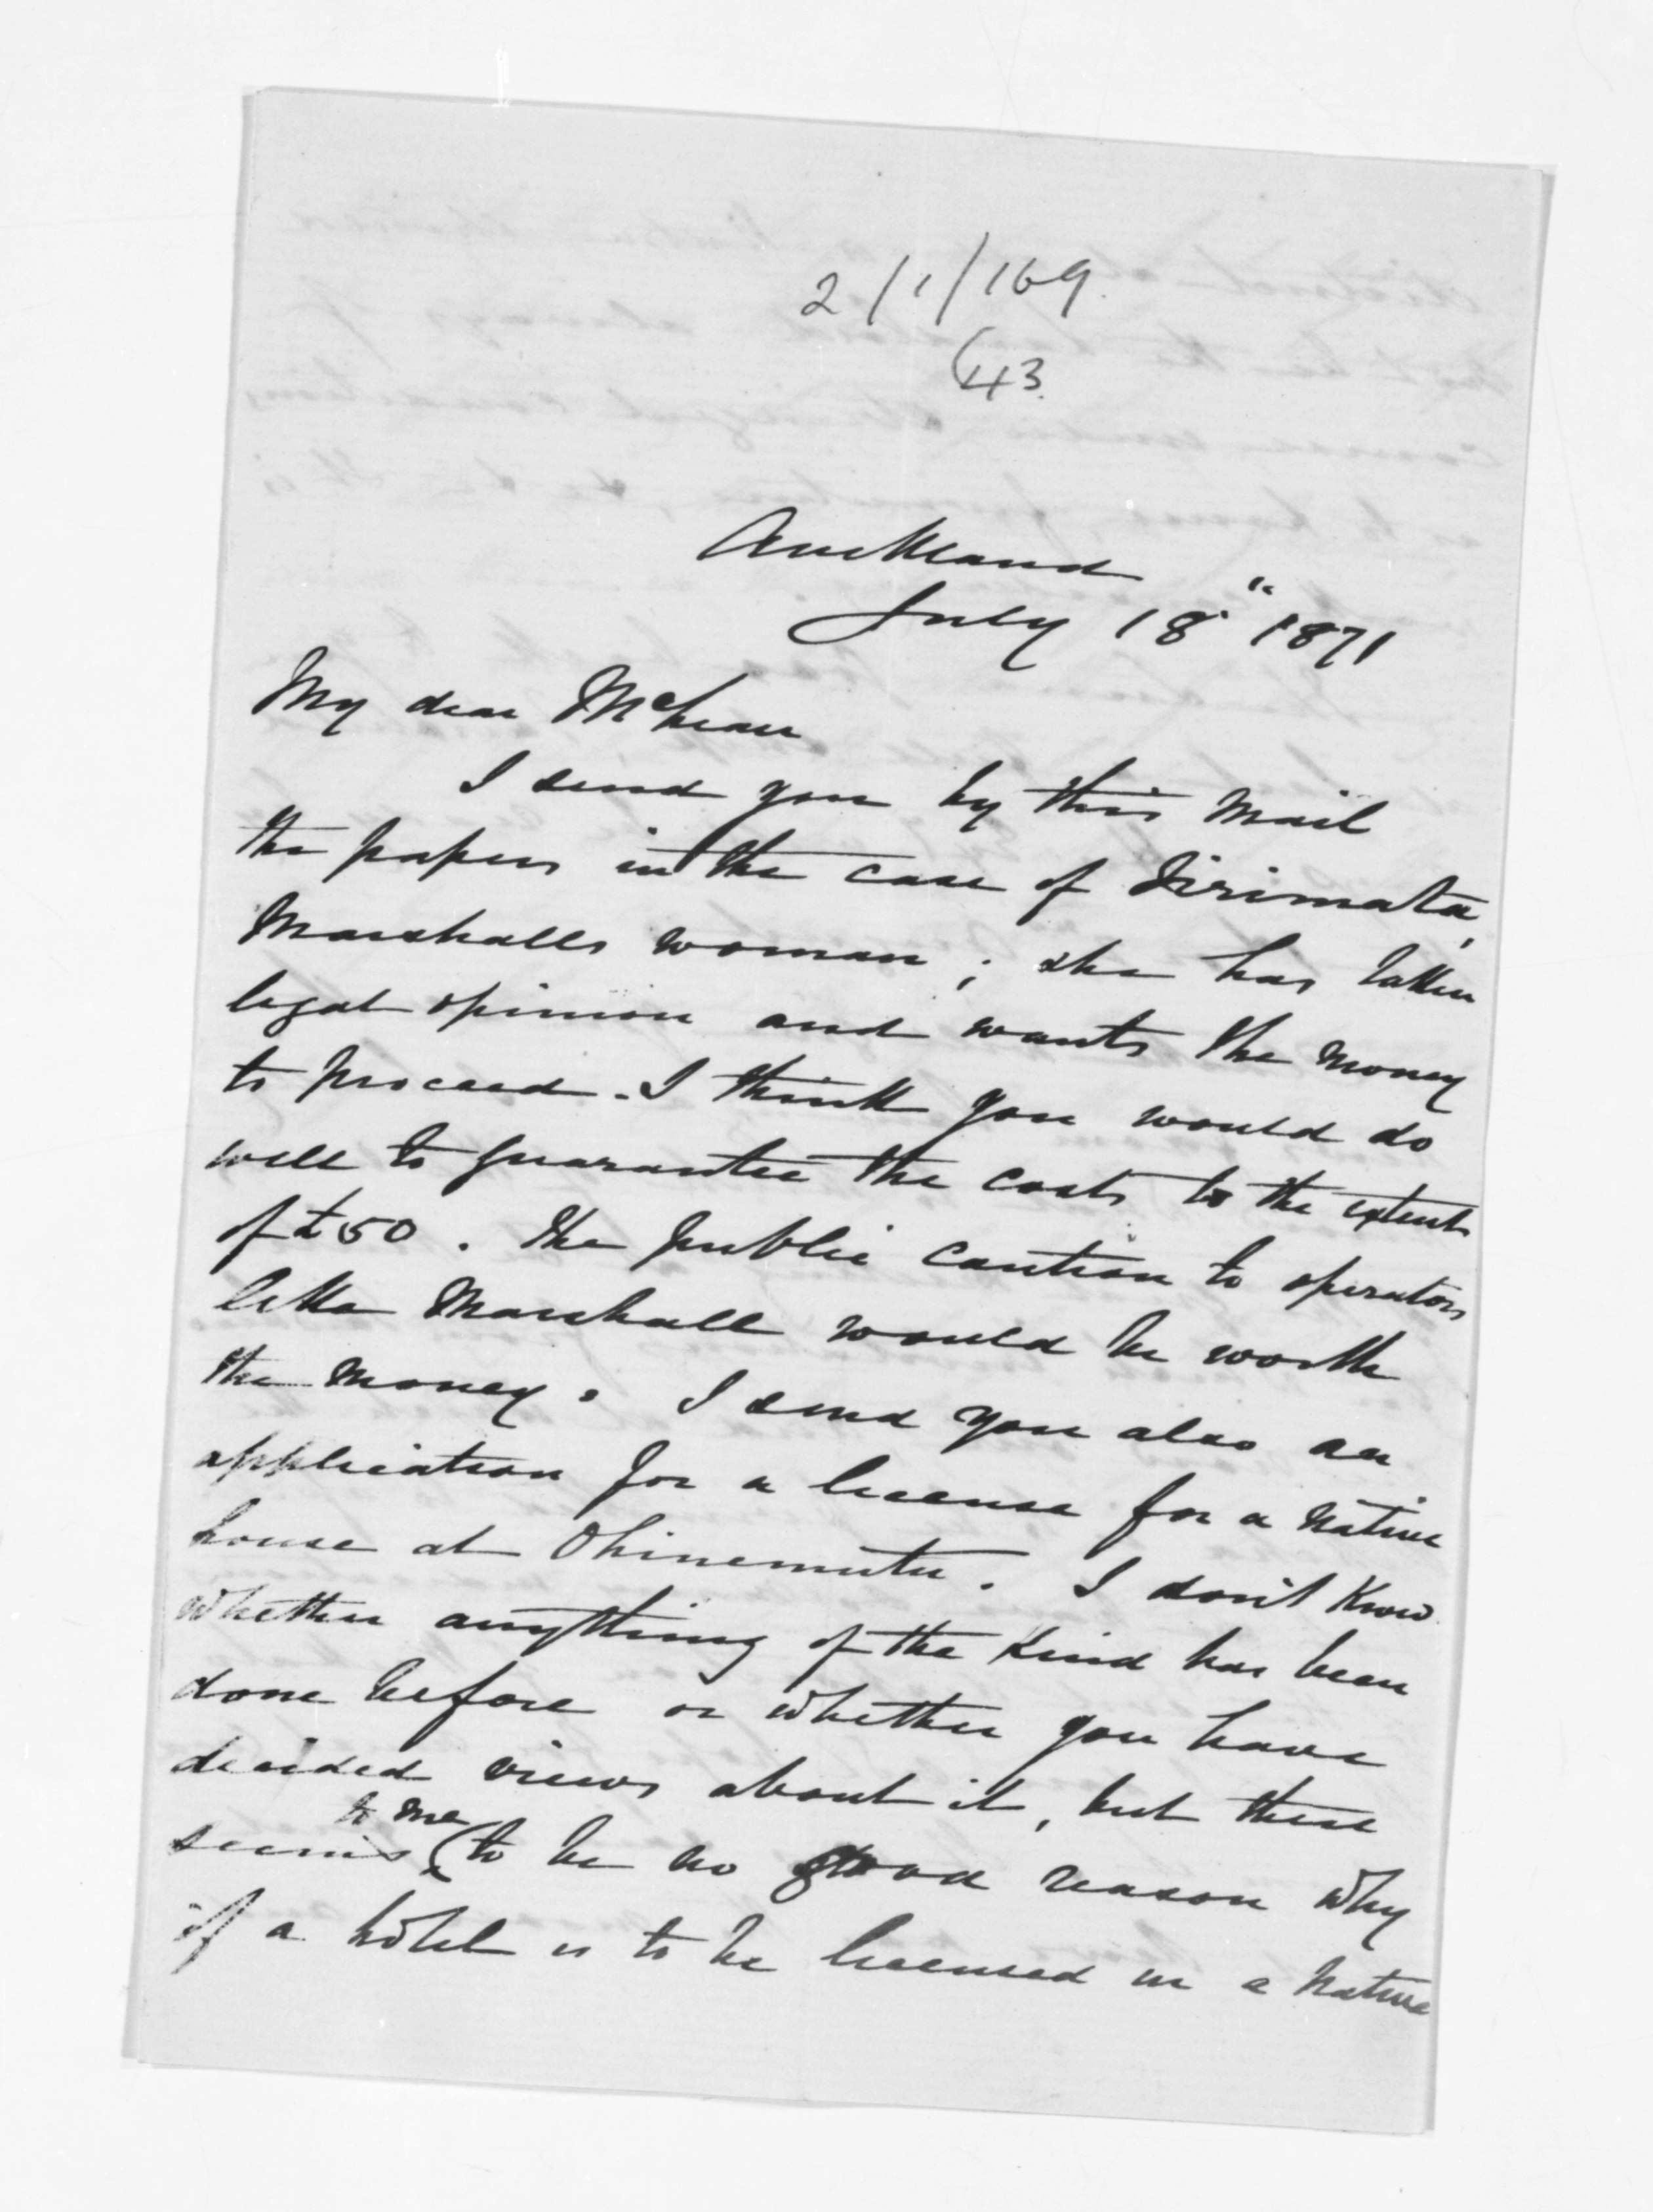 2/1/169.
(43.
Auckland
July 18" 1871
My dear McLean
I send you by this mail
the papers in the case of Tirimata,
Marshalls woman; she has taken
legal opinion and wants the money
to proceed. I think you would do
well to guarantee the costs to the extent
of £50. The public caution to operators
like Marshall would be worth
the money. I send you also an
application for a license for a native
house at Ohinemutu. I don't know
whether anything of the kind has been
done before or whether you have
decided views about it, but there
seems to me to be no good reason why
if a hotel is to be licensed in a native